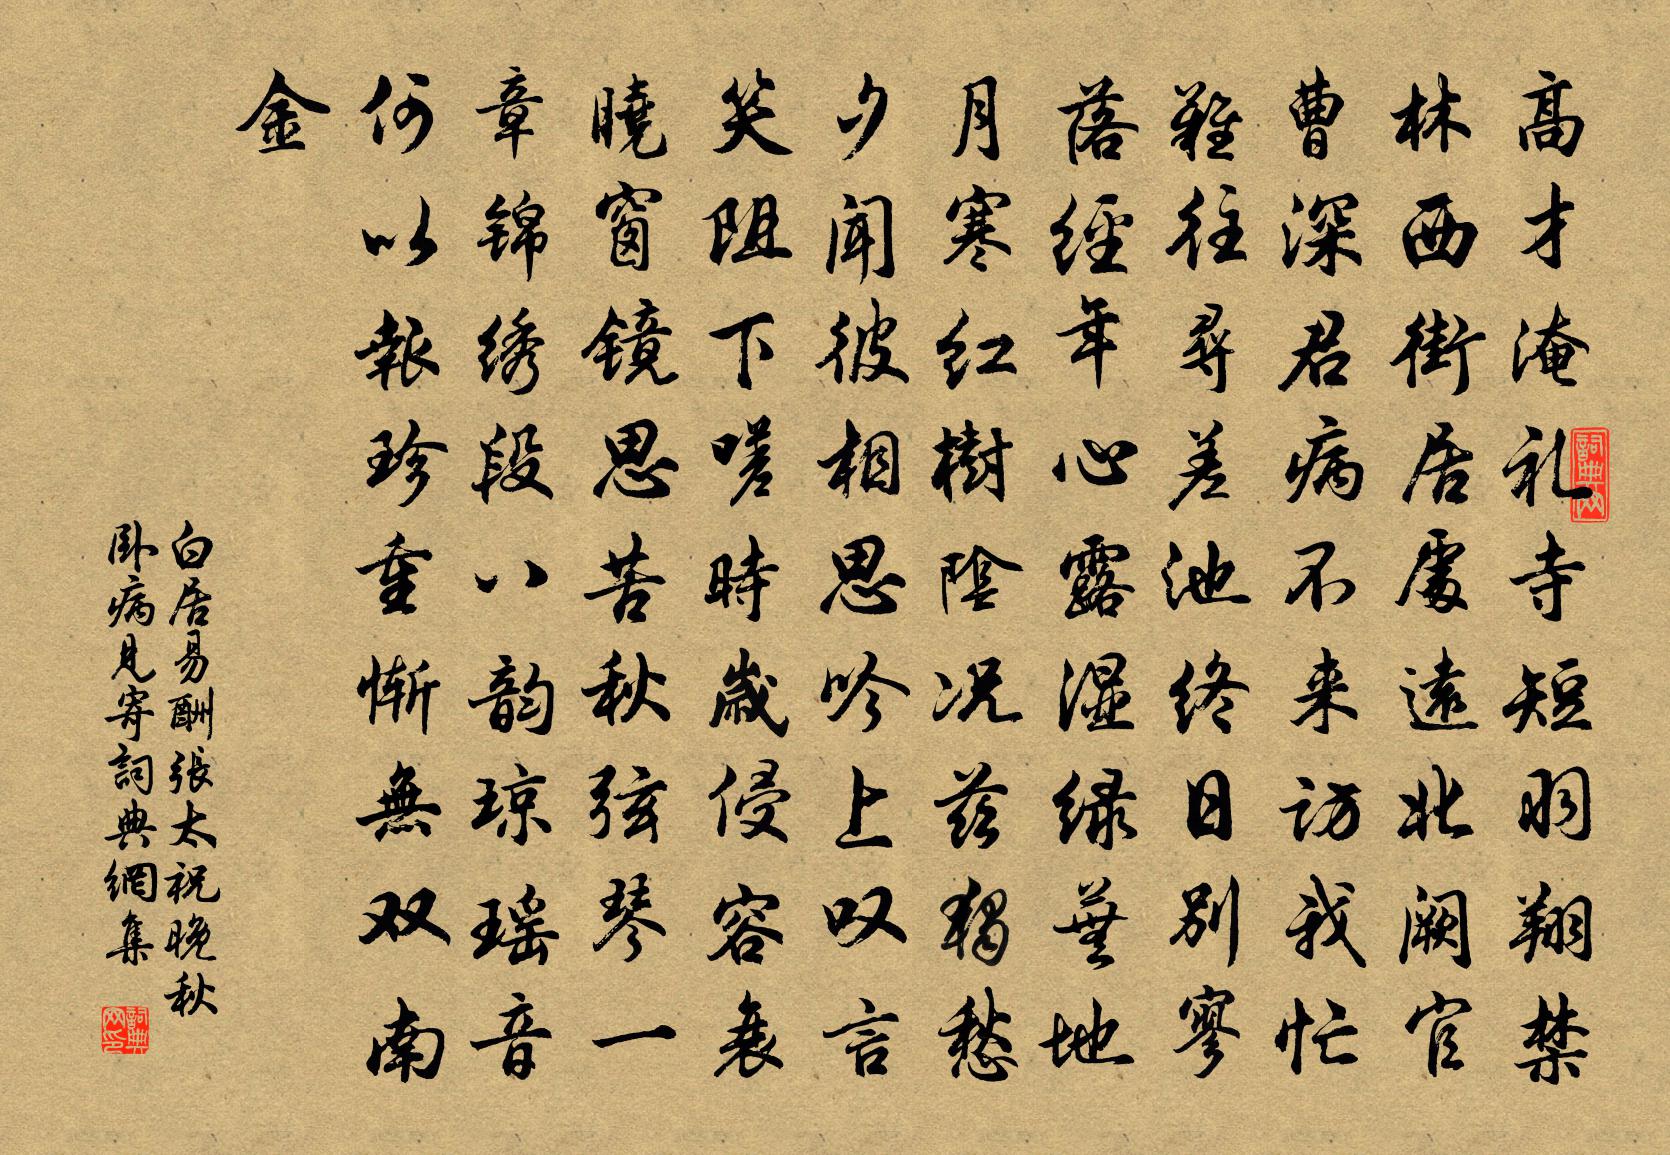 高才淹礼寺短羽翔禁
林西街居處遠北阙官
曹深君病不来访我忙
難往尋差池终日别寥
落經年心露湿绿蕪地
月寒红樹陰况兹獨愁
夕闻彼相思吟上叹言
笑阻下嗟時歲侵容衰
曉窗镜思苦秋弦琴一
章锦绣段八韵琼瑶音
何以報珍重慚無双南
金
白居易酬張太祝晚秋
卧病見寄詞典網集
詞典网
詞典网印